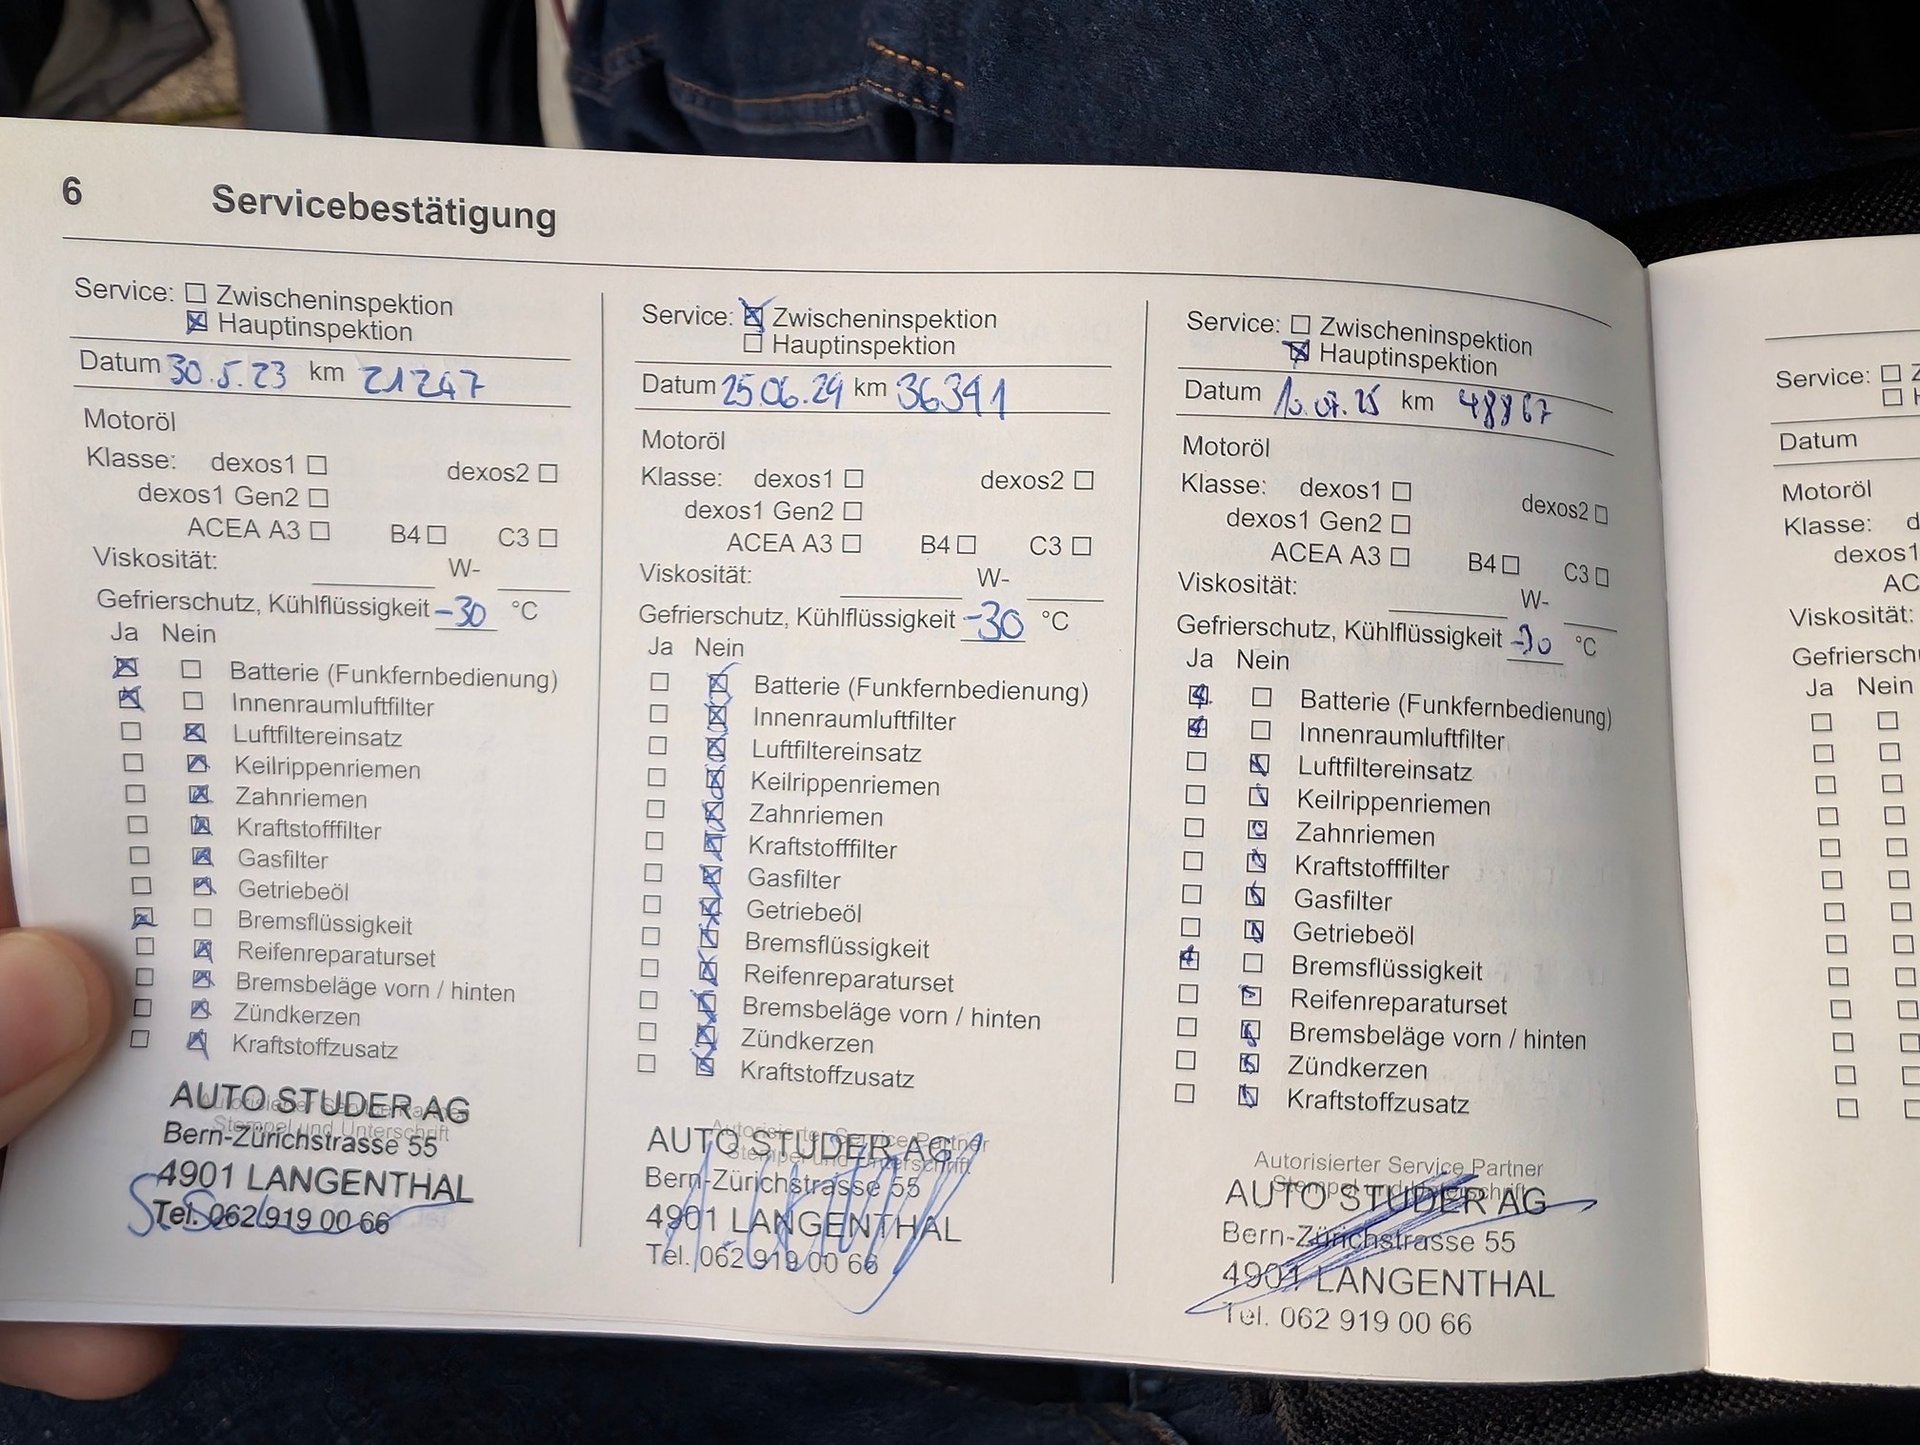 6 Servicebestätigung
Service: ☐ Zwischeninspektion
☒ Hauptinspektion
Datum 30.5.23 km 21247
Motoröl
Klasse: dexos1 ☐ dexos2 ☐
dexos1 Gen2 ☐
ACEA A3 ☐ B4 ☐ C3 ☐
Viskosität: W-
Gefrierschutz, Kühlflüssigkeit -30 °C
Ja Nein
☒ ☐ Batterie (Funkfernbedienung)
☒ ☐ Innenraumluftfilter
☐ ☒ Luftfiltereinsatz
☐ ☒ Keilrippenriemen
☐ ☒ Zahnriemen
☐ ☒ Kraftstofffilter
☐ ☒ Gasfilter
☐ ☒ Getriebeöl
☒ ☐ Bremsflüssigkeit
☐ ☒ Reifenreparaturset
☐ ☒ Bremsbeläge vorn / hinten
☐ ☒ Zündkerzen
☐ ☒ Kraftstoffzusatz
Autorisierter Service Partner
Stempel und Unterschrift
AUTO STUDER AG
Bern-Zürichstrasse 55
4901 LANGENTHAL
Tel. 062 919 00 66
Service: ☒ Zwischeninspektion
☐ Hauptinspektion
Datum 25.06.24 km 36341
Motoröl
Klasse: dexos1 ☐ dexos2 ☐
dexos1 Gen2 ☐
ACEA A3 ☐ B4 ☐ C3 ☐
Viskosität: W-
Gefrierschutz, Kühlflüssigkeit -30 °C
Ja Nein
☐ ☒ Batterie (Funkfernbedienung)
☐ ☒ Innenraumluftfilter
☐ ☒ Luftfiltereinsatz
☐ ☒ Keilrippenriemen
☐ ☒ Zahnriemen
☐ ☒ Kraftstofffilter
☐ ☒ Gasfilter
☐ ☒ Getriebeöl
☐ ☒ Bremsflüssigkeit
☐ ☒ Reifenreparaturset
☐ ☒ Bremsbeläge vorn / hinten
☐ ☒ Zündkerzen
☐ ☒ Kraftstoffzusatz
Autorisierter Service Partner
Stempel und Unterschrift
AUTO STUDER AG
Bern-Zürichstrasse 55
4901 LANGENTHAL
Tel. 062 919 00 66
Service: ☐ Zwischeninspektion
☒ Hauptinspektion
Datum 10.07.25 km 48867
Motoröl
Klasse: dexos1 ☐ dexos2 ☐
dexos1 Gen2 ☐
ACEA A3 ☐ B4 ☐ C3 ☐
Viskosität: W-
Gefrierschutz, Kühlflüssigkeit -30 °C
Ja Nein
☒ ☐ Batterie (Funkfernbedienung)
☒ ☐ Innenraumluftfilter
☐ ☒ Luftfiltereinsatz
☐ ☒ Keilrippenriemen
☐ ☒ Zahnriemen
☐ ☒ Kraftstofffilter
☐ ☒ Gasfilter
☐ ☒ Getriebeöl
☒ ☐ Bremsflüssigkeit
☐ ☒ Reifenreparaturset
☐ ☒ Bremsbeläge vorn / hinten
☐ ☒ Zündkerzen
☐ ☒ Kraftstoffzusatz
Autorisierter Service Partner
Stempel und Unterschrift
AUTO STUDER AG
Bern-Zürichstrasse 55
4901 LANGENTHAL
Tel. 062 919 00 66
Service: ☐ Z
☐ H
Datum
Motoröl
Klasse: d
dexos1
AC
Viskosität:
Gefriersch
Ja Nein